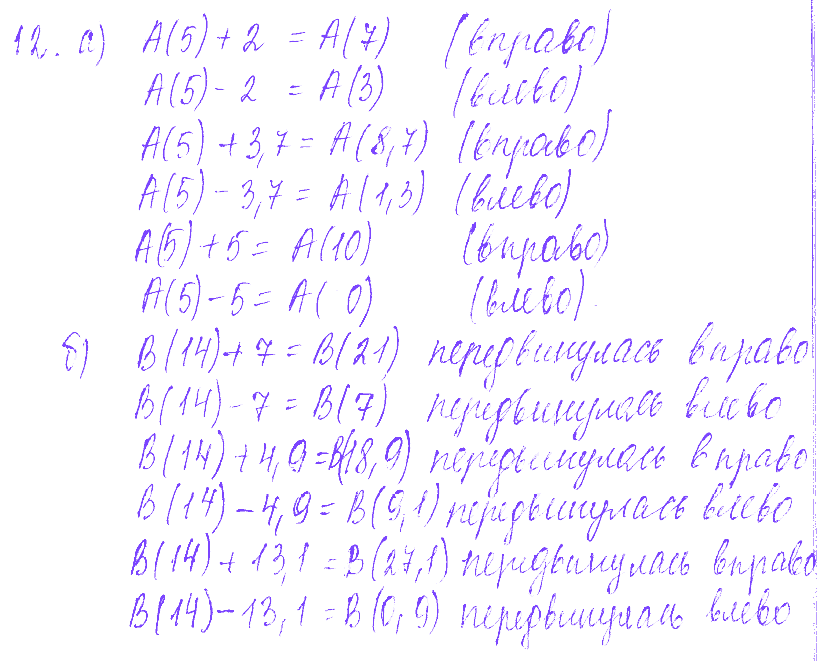 12. а) А(5) + 2 = А(7) (вправо)
А(5) - 2 = А(3) (влево)
А(5) + 3,7 = А(8,7) (вправо)
А(5) - 3,7 = А(1,3) (влево)
А(5) + 5 = А(10) (вправо)
А(5) - 5 = А( 0) (влево)
б) В(14) + 7 = В(21) передвинулась вправо
В(14) - 7 = В(7) передвинулась влево
В(14) + 4,9 = В(18,9) передвинулась вправо
В(14) - 4,9 = В(9,1) передвинулась влево
В(14) + 13,1 = В(27,1) передвинулась вправо
В(14) - 13,1 = В(0,9) передвинулась влево